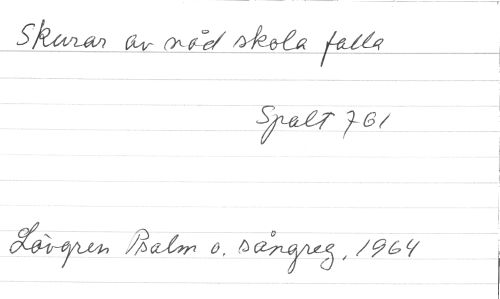 Skurar av nåd skola falla
Spalt 761
Lövgren Psalm o. sångreg. 1964